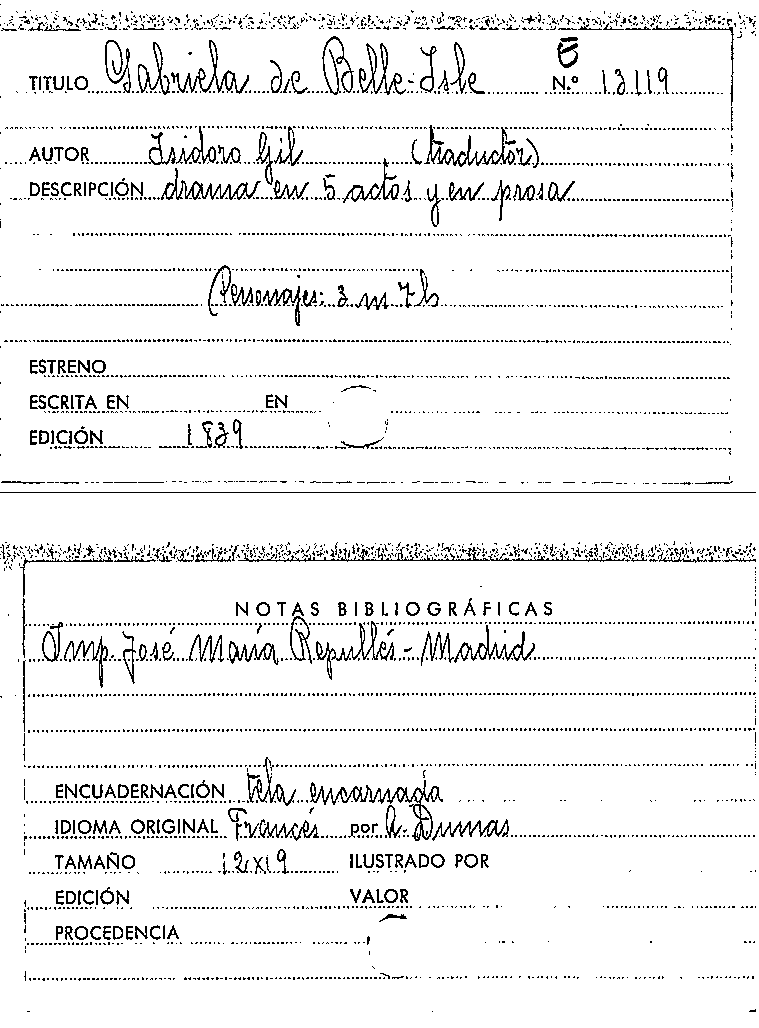 TITULO Gabriela de Belle-Isle N.º 13119
AUTOR Isidoro Gil (traductor)
DESCRIPCIÓN drama en 5 actos y en prosa
Personajes: 3 m 7 h
ESTRENO
ESCRITA EN EN
EDICIÓN 1839
NOTAS BIBLIOGRÁFICAS
Imp. José María Repullés - Madrid
ENCUADERNACIÓN tela encarnada
IDIOMA ORIGINAL Francés por A. Dumas
TAMAÑO 12x19 ILUSTRADO POR
EDICIÓN VALOR
PROCEDENCIA